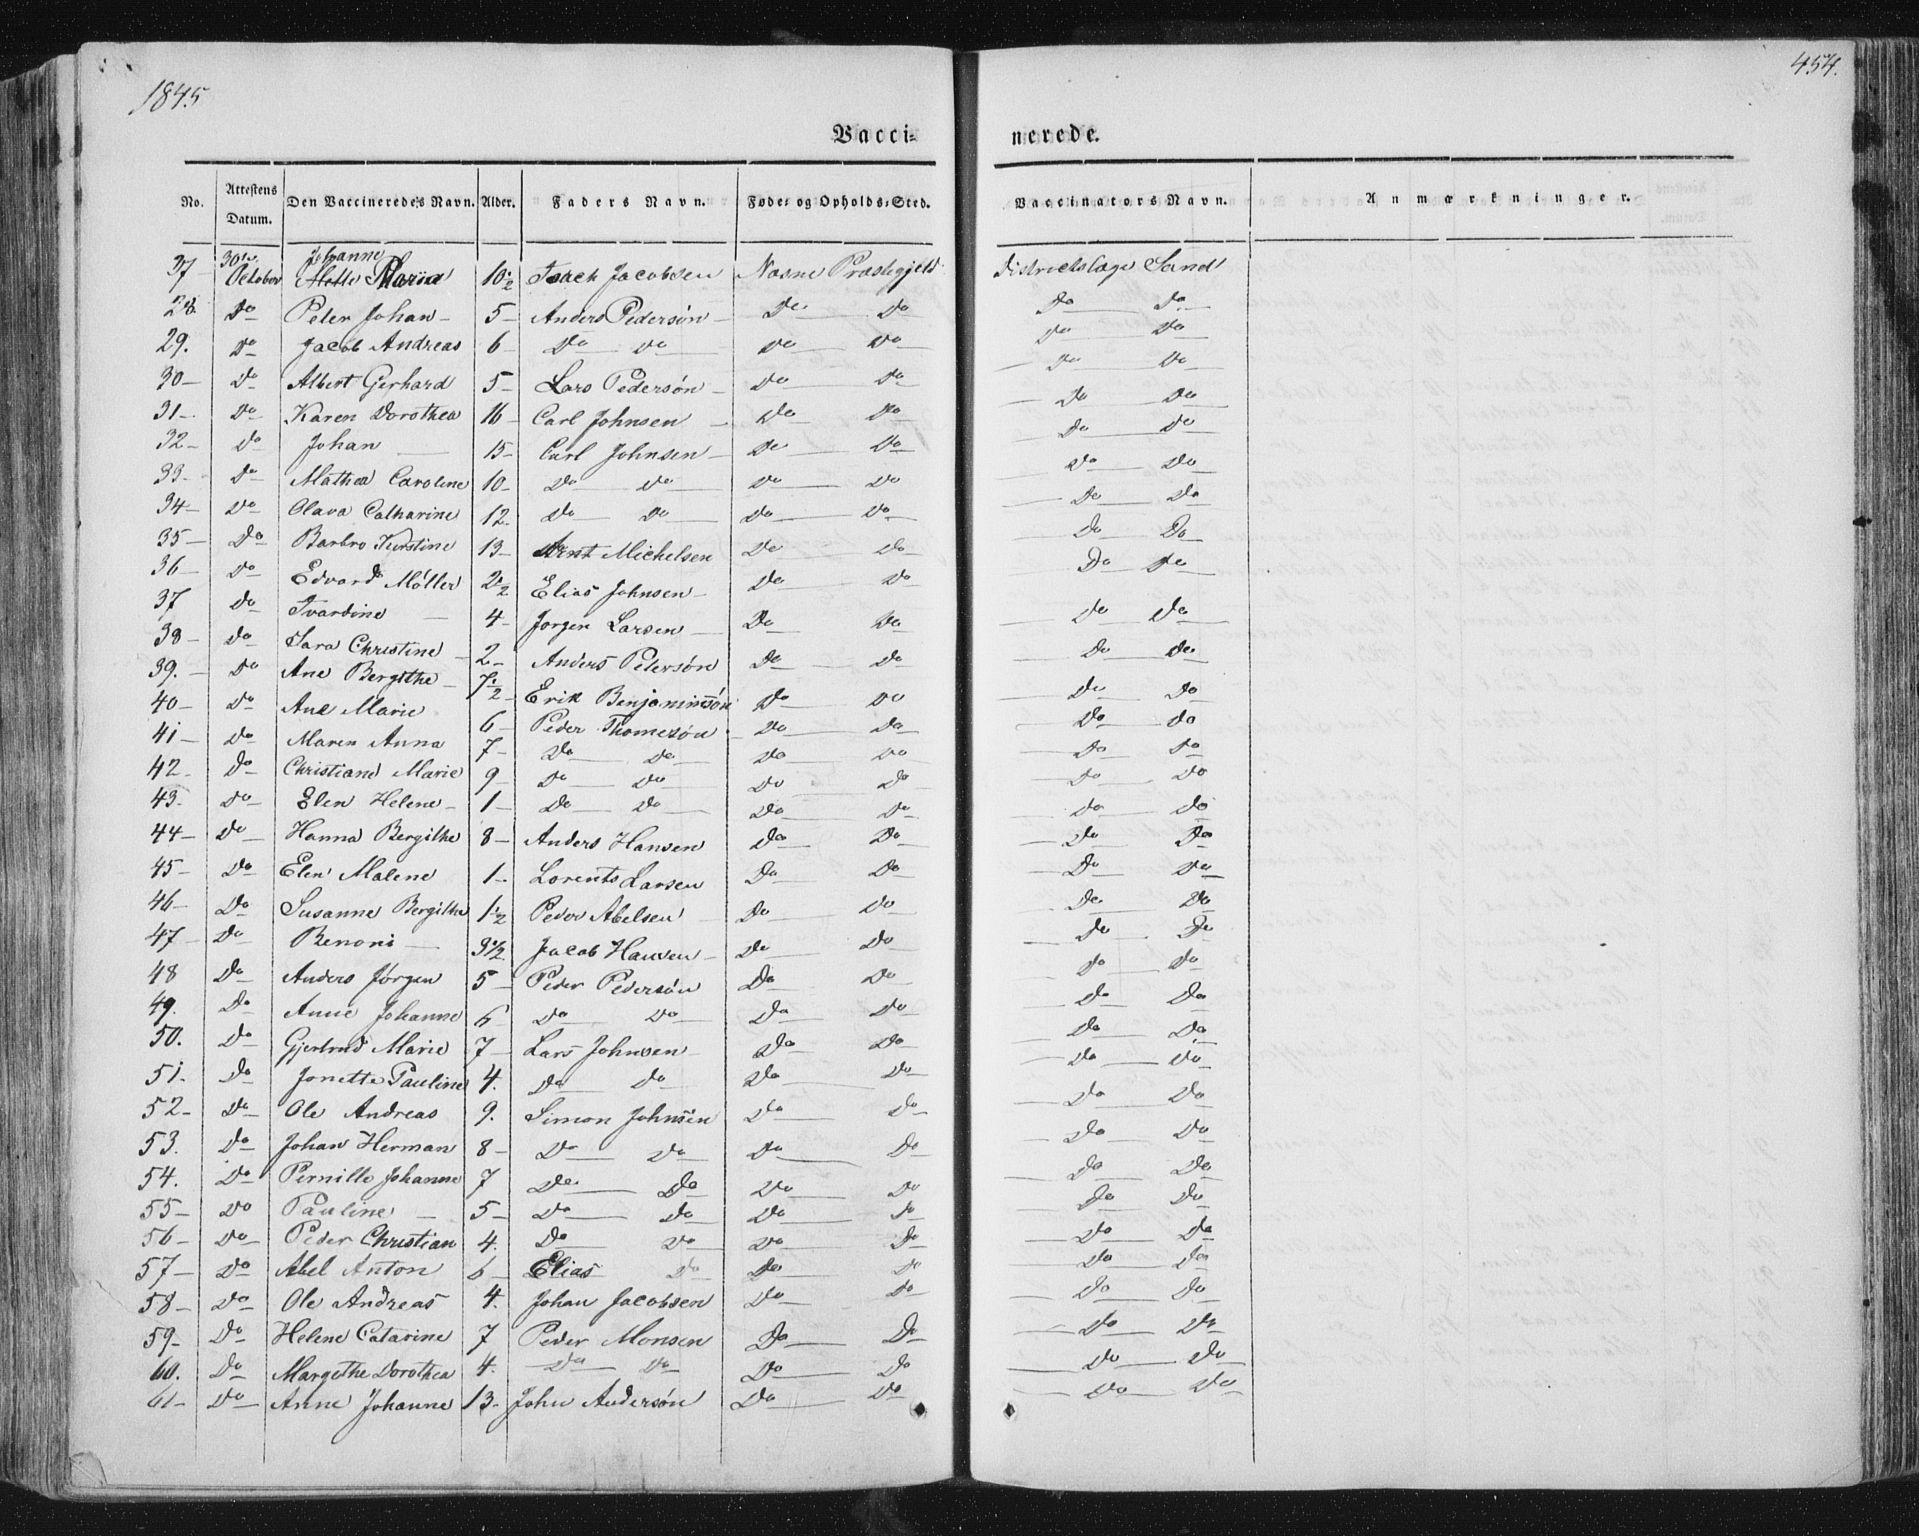 1845
454.
Vacci-
nerede.
No. Attestens Datum. Den Vaccineredes Navn. Alder. Faders Navn. Føde- og Opholds-Sted. Vaccinators Navn. Anmærkninger.
37 30te October Johanne Maria 10 1/2 Jacobsen Næsne Præstegjeld Districtslæge Sand
28. Do Peter Johan 5 Anders Pedersøn Do Do Do Do
29. Do Jacob Andreas 6 Do Do Do Do Do Do
30 Do Albert Gerhard 5 Lars Pedersøn Do Do Do Do
31 Do Karen Dorothea 16 Carl Johnsen Do Do Do Do
32 Do Johan 15 Carl Johnsen Do Do Do Do
33 Do Mathea Caroline 10 Do Do Do Do Do Do
34 Do Olava Catharine 12 Do Do Do Do Do Do
35 Do Barbro Kirstine 13 Arnt Michelsen Do Do Do Do
36 Do Edvard Møller 2 1/2 Elias Johnsen Do Do Do Do
37 Do Ivardine 4 Jørgen Larsen Do Do Do Do
38 Do Sara Christine 2 Anders Petersøn Do Do Do Do
39. Do Ane Bergithe 7 1/2 Erik Benjaminsøn Do Do Do Do
40 Do Ane Marie 6 Peder Thomesøn Do Do Do Do
41 Do Maren Anna 7 Do Do Do Do Do Do
42 Do Christiane Marie 9 Do Do Do Do Do Do
43 Do Elen Helene 1 Do Do Do Do Do Do
44 Do Hanna Bergithe 8 Anders Hansen Do Do Do Do
45 Do Elen Malene 1 Lorents Larsen Do Do Do Do
46 Do Susanne Bergithe 1 1/2 Peder Abelsen Do Do Do Do
47 Do Benoni 3 1/2 Jacob Hansen Do Do Do Do
48 Do Anders Jørgen 5 Peder Pedersøn Do Do Do Do
49. Do Anne Johanne 6 Do Do Do Do Do Do
50. Do Gjertrud Marie 7 Lars Johnsen Do Do Do Do
51. Do Jonette Pauline 4. Do Do Do Do Do Do
52 Do Ole Andreas 9. Simon Johnsen Do Do Do Do
53. Do Johan Herman 8 Do Do Do Do Do Do
54. Do Pernille Johanne 7 Do Do Do Do Do Do
55 Do Pauline 5 Do Do Do Do Do Do
56 Do Peder Christian 4. Do Do Do Do Do Do
57 Do Abel Anton 6 Elias Do Do Do Do Do
58 Do Ole Andreas 4. Johan Jacobsen Do Do Do Do
59 Do Helene Catarine 7 Peder Monsen Do Do Do Do
60. Do Margethe Dorothea 4. Do Do Do Do Do Do
61 Do Anne Johanne 13 John Andersøn Do Do Do Do